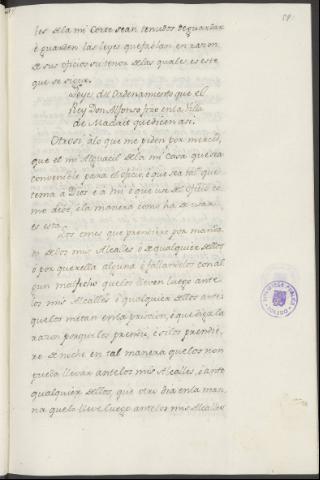 les de la mi Corte sean tenudos de guardar
è guarden las leyes que fablan en razon
de sus oficios su tenor de las quales es este
que se sigue.
Leyes del Ordenamiento que el
Rey Don Alfonso fizo en la Villa
de Madrit que dicen asi.
Otrosi, à lo que me piden por merced,
que el mi Alguacil de la mi Casa que sea
convenible para el oficio, è que sea tal que
tema à Dios è à mi è que use del oficio co
mo debe, è la manera como ha de usar
es esta.
Los omes que prendiere por manda
do de los mis Alcalles ò de qualquier dellos
ò por querella alguna ò fallandolos con al
gun malfecho que los lleven luego ante
los mis Alcalles ò qualquier dellos antes
que los metan en la prision, è que diga la
razon porque los prendiò, è si los prendie
re de noche en tal manera que los non
pueda llevar ante los mis Alcalles, ò ante
qualquier dellos, que otro dia en la maña
na que lo lleve luego ante los mis Alcalles
BIBLIOTECA PUBLICA
TOLEDO